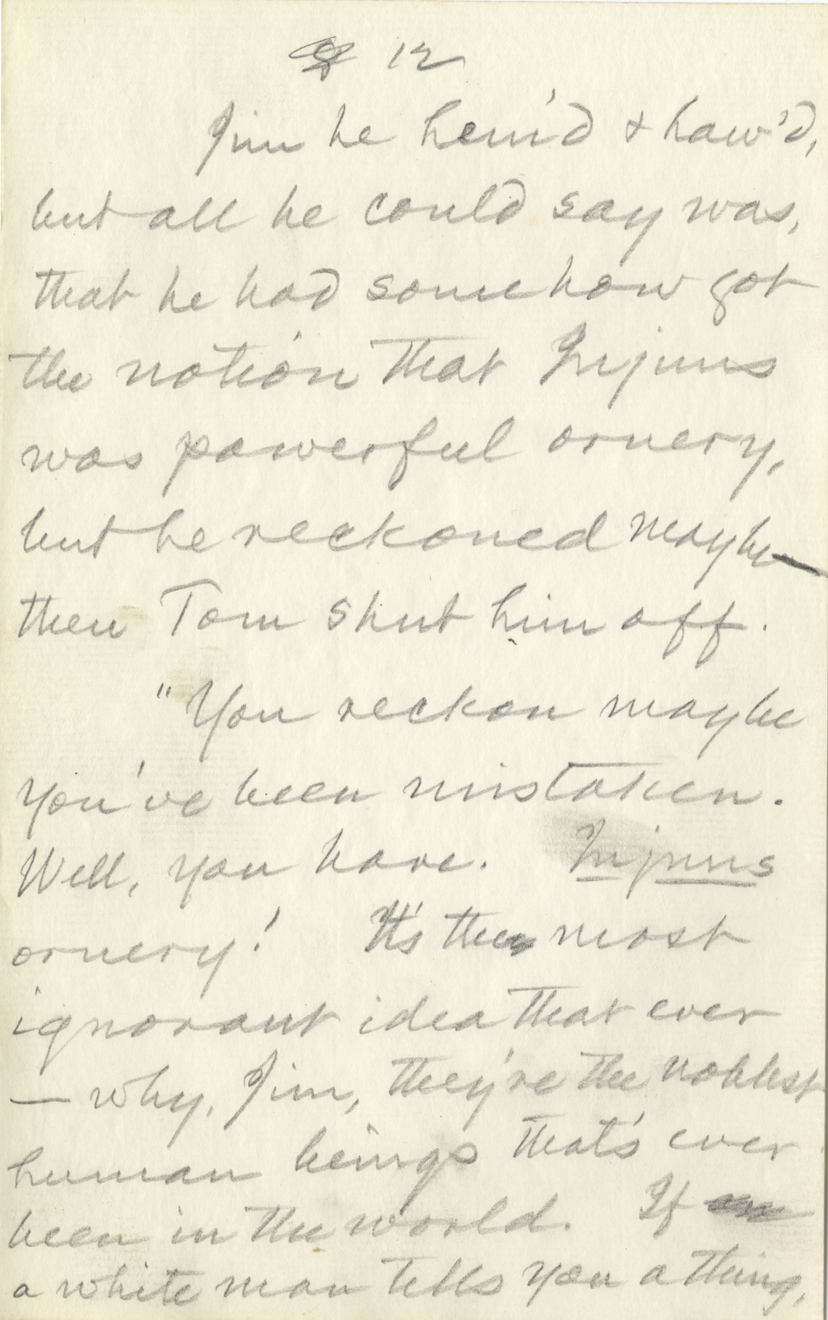 12
Jim he hem'd & haw'd,
but all he could say was,
that he had somehow got
the notion that Injuns
was powerful ornery,
but he reckoned maybe—
then Tom shut him off.
"You reckon maybe
you've been mistaken.
Well, you have. Injuns
ornery! It's the most
ignorant idea that ever
— why, Jim, they're the noblest
human beings that's ever
been in the world. If
a white man tells you a thing,